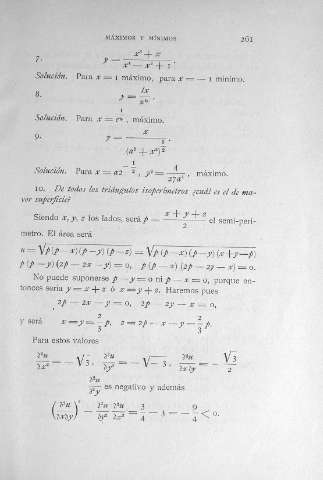 MÁXIMOS Y MÍNIMOS 261
7. y = (x³ + x) / (x⁴ − x² + 1).
Solución. Para x = 1 máximo, para x = — 1 mínimo.
8. y = lx / xⁿ.
Solución. Para x = e^(1/n), máximo.
9. y = x / (a² + x²)^(3/2).
Solución. Para x = a2^(−1/2), y² = 4 / 27a⁴, máximo.
10. De todos los triángulos isoperímetros ¿cuál es el de ma-
yor superficie?
Siendo x, y, z los lados, será p = (x + y + z) / 2 el semi-perí-
metro. El área será
u = √p(p − x)(p − y)(p − z) = √p(p − x)(p − y)(x + y − p)
p(p − y)(2p − 2x − y) = 0, p(p − x)(2p − 2y − x) = 0.
No puede suponerse p − y = 0 ni p − x = 0, porque en-
tonces sería y = x + z ó x = y + z. Haremos pues
2p − 2x − y = 0, 2p − 2y − x = 0,
y será x = y = 2/3 p, z = 2p − x − y = 2/3 p.
Para estos valores
∂²u/∂x² = − √3, ∂²u/∂y² = − √3, ∂²u/∂x∂y = − √3/2
∂²u/∂²y es negativo y además
(∂²u/∂x∂y)² − ∂²u/∂y² ∂²u/∂x² = 3/4 − 3 = − 9/4 < 0.